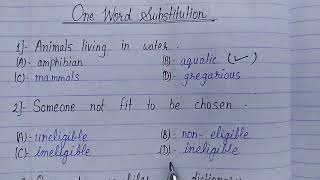 One Word Substitution.
1]- Animals living in water.
(A)- amphibian (B)- aquatic (✓)
(C)- mammals (D)- gregarious
2]- Someone not fit to be chosen.
(A)- uneligible (B)- non-eligible
(C)- imeligible (D)- ineligible
dictionary